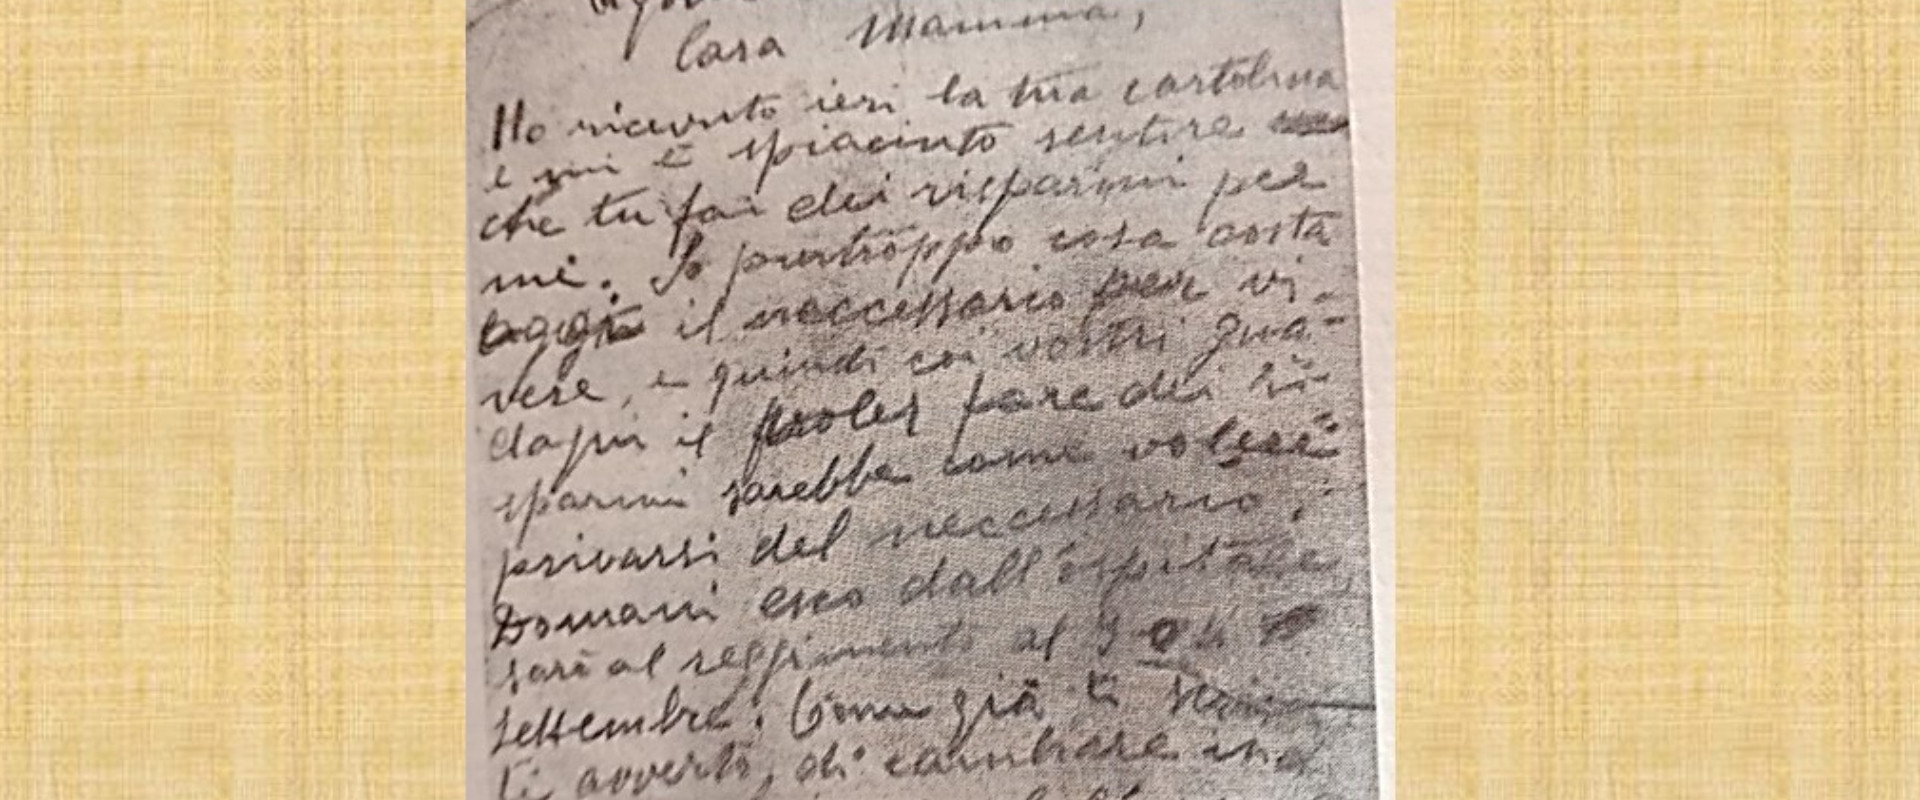 Cara Mamma,
Ho ricevuto ieri la tua cartolina
e mi è spiaciuto sentire
che tu fai dei risparmi per
me. Io purtroppo cosa costa
oggi il neccessario per vi-
vere, e quindi coi vostri gua-
dagni il voler fare dei ri-
sparmi sarebbe come voler
privarsi del neccessario.
Domani esco dall'ospitale,
sarò al reggimento al
settembre. Come già ti
ti avverto, di cambiare